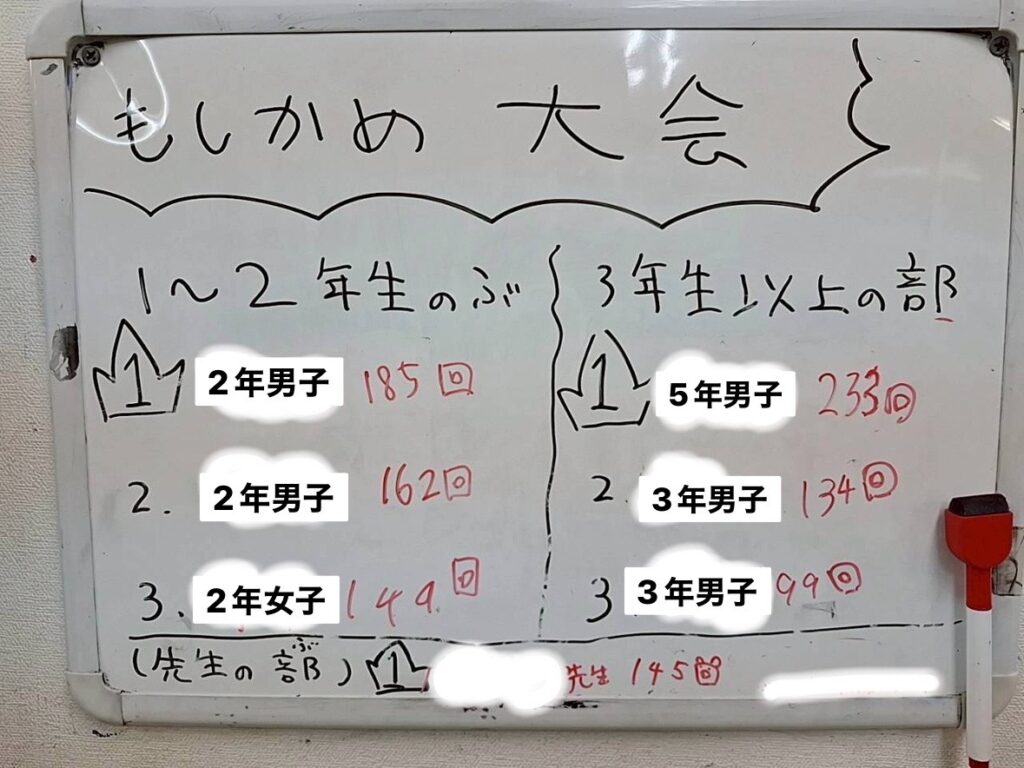 もしかめ 大会
1～2年生のぶ
1 2年男子 185回
2. 2年男子 162回
3. 2年女子 149回
3年生以上の部
1 5年男子 233回
2. 3年男子 134回
3 3年男子 99回
(先生の部) ぶ
1 先生 145回